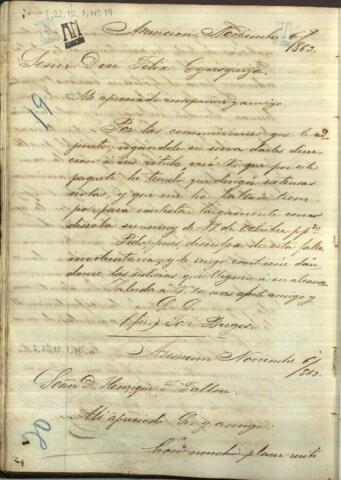 I, 22, 12, 1, Nº 19
Asuncion Noviembre 6/
1863.
Señor Don Felix Egusquiza.
19
Mi apreciado compatriota y amigo.
Por las comunicaciones que le ad
junto, rogándole se sirva darles direc
cion á su rótulo, verá V. que por este
paquete he tenido que dirigir extensas
notas, y que me ha faltado tiem
po para contestar largamente como
deseaba su nota de 17 de Octubre ppdo.
Pido pues, disculpe de esta falta
involuntaria, y le ruego continúe dán
dome las noticias que lleguen á su alcance.
Saluda á V. su mas afecto amigo y
S. S.
José Berges
Asuncion Noviembre 6/
1863.
Señor D. Henrique F. Fallon.
20
Mi apreciado Sr. y amigo.
Con mucho placer recibi